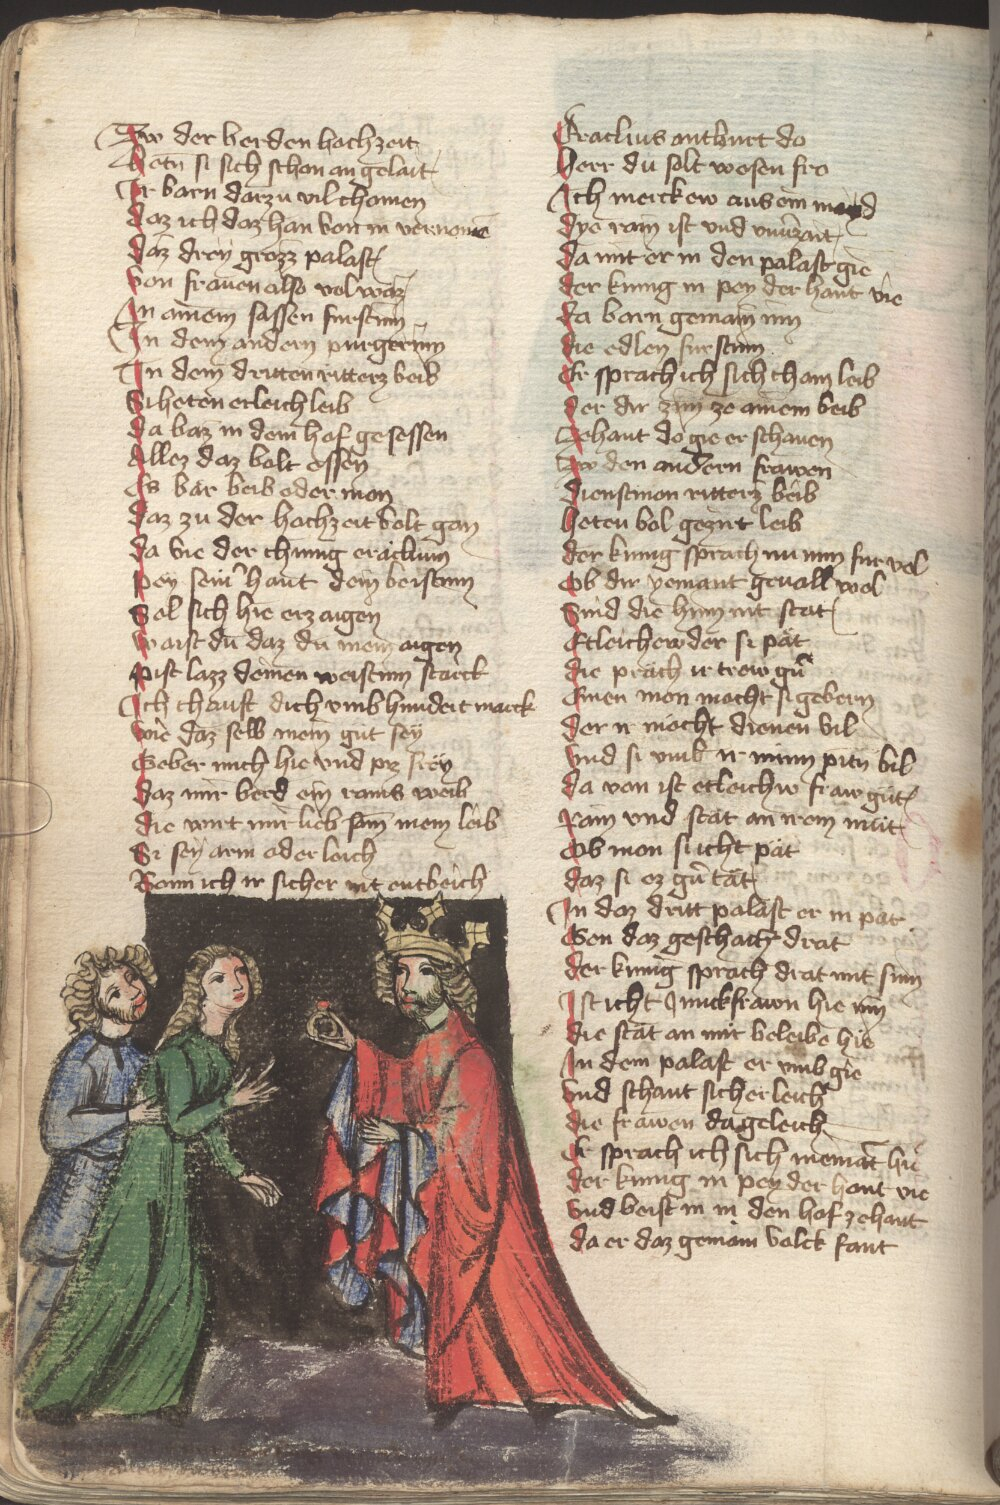 Zw der berden hachzeit
Hetn si sich schon an gelait
Ir barn darzu vil chomen
daz ich daz han von in vernomē
daz drey grozz palast
von frauen also vol waz
In ainem sassen furstinn
In dem andern purgerinn
In dem dritten ritterz beib
Si heten etleich leib
da baz in dem hof gesessen
Allez daz bolt essen
Es bar beib oder man
daz zu der hachzeit bolt gan
da vie der chunig eraclium
pey seinr hant dem beistum
Sol sich hie erzaigen
waist du daz du mein aigen
pist lazz deinen weistum starck
Ich chauft dich vmb hundert marck
wie daz selb mein gut sey
Geber mich hie vnd piz frey
daz mir berd ein rains weib
die wirt mir lieb sam mein leib
Si sey arm oder leich
Bann ich ir sicher nit entbeich
Eraclius antburt do
Herr du solt wesen fro
Ich merck ew aus ein
dye rain ist vnd vnuerzait
da mit er in den palast gie
der kunig in pey der hant vie
da barn gemain inn
die edlen furstinn
Er sprach ich sich chain leib
der dir zim ze ainem beib
Zehant do gie er schauen
Zw den andern frawen
dienstman ritterz beib
Heten bol geziert leib
der kunig sprach nu nim fur vol
Ob dir yemant geuall wol
Sind die hinn nit stat
Etleichew der si pät
die präch ir trew gů
Einen man macht si gebern
der ir mocht dienen vil
Vnd si vmb ir minn pitn bil
da von ist etleichw fraw güt
Rain vnd stät an irem müt
Ob man si icht pät
daz si ez gů tät
In daz dritt palast er in pat
Gen daz geschach drat
der kunig sprach drat mit sinn
Ist icht Junckfrawn hie inn
die stät an mir beleibe hie
In dem palast er vmb gie
Vnd schaut sicherleich
die frawen da geleich
Er sprach ich sich niemāt hie
der kunig in pey der hant vie
Vnd beist in in den hof zehant
da er daz gemain volck fant